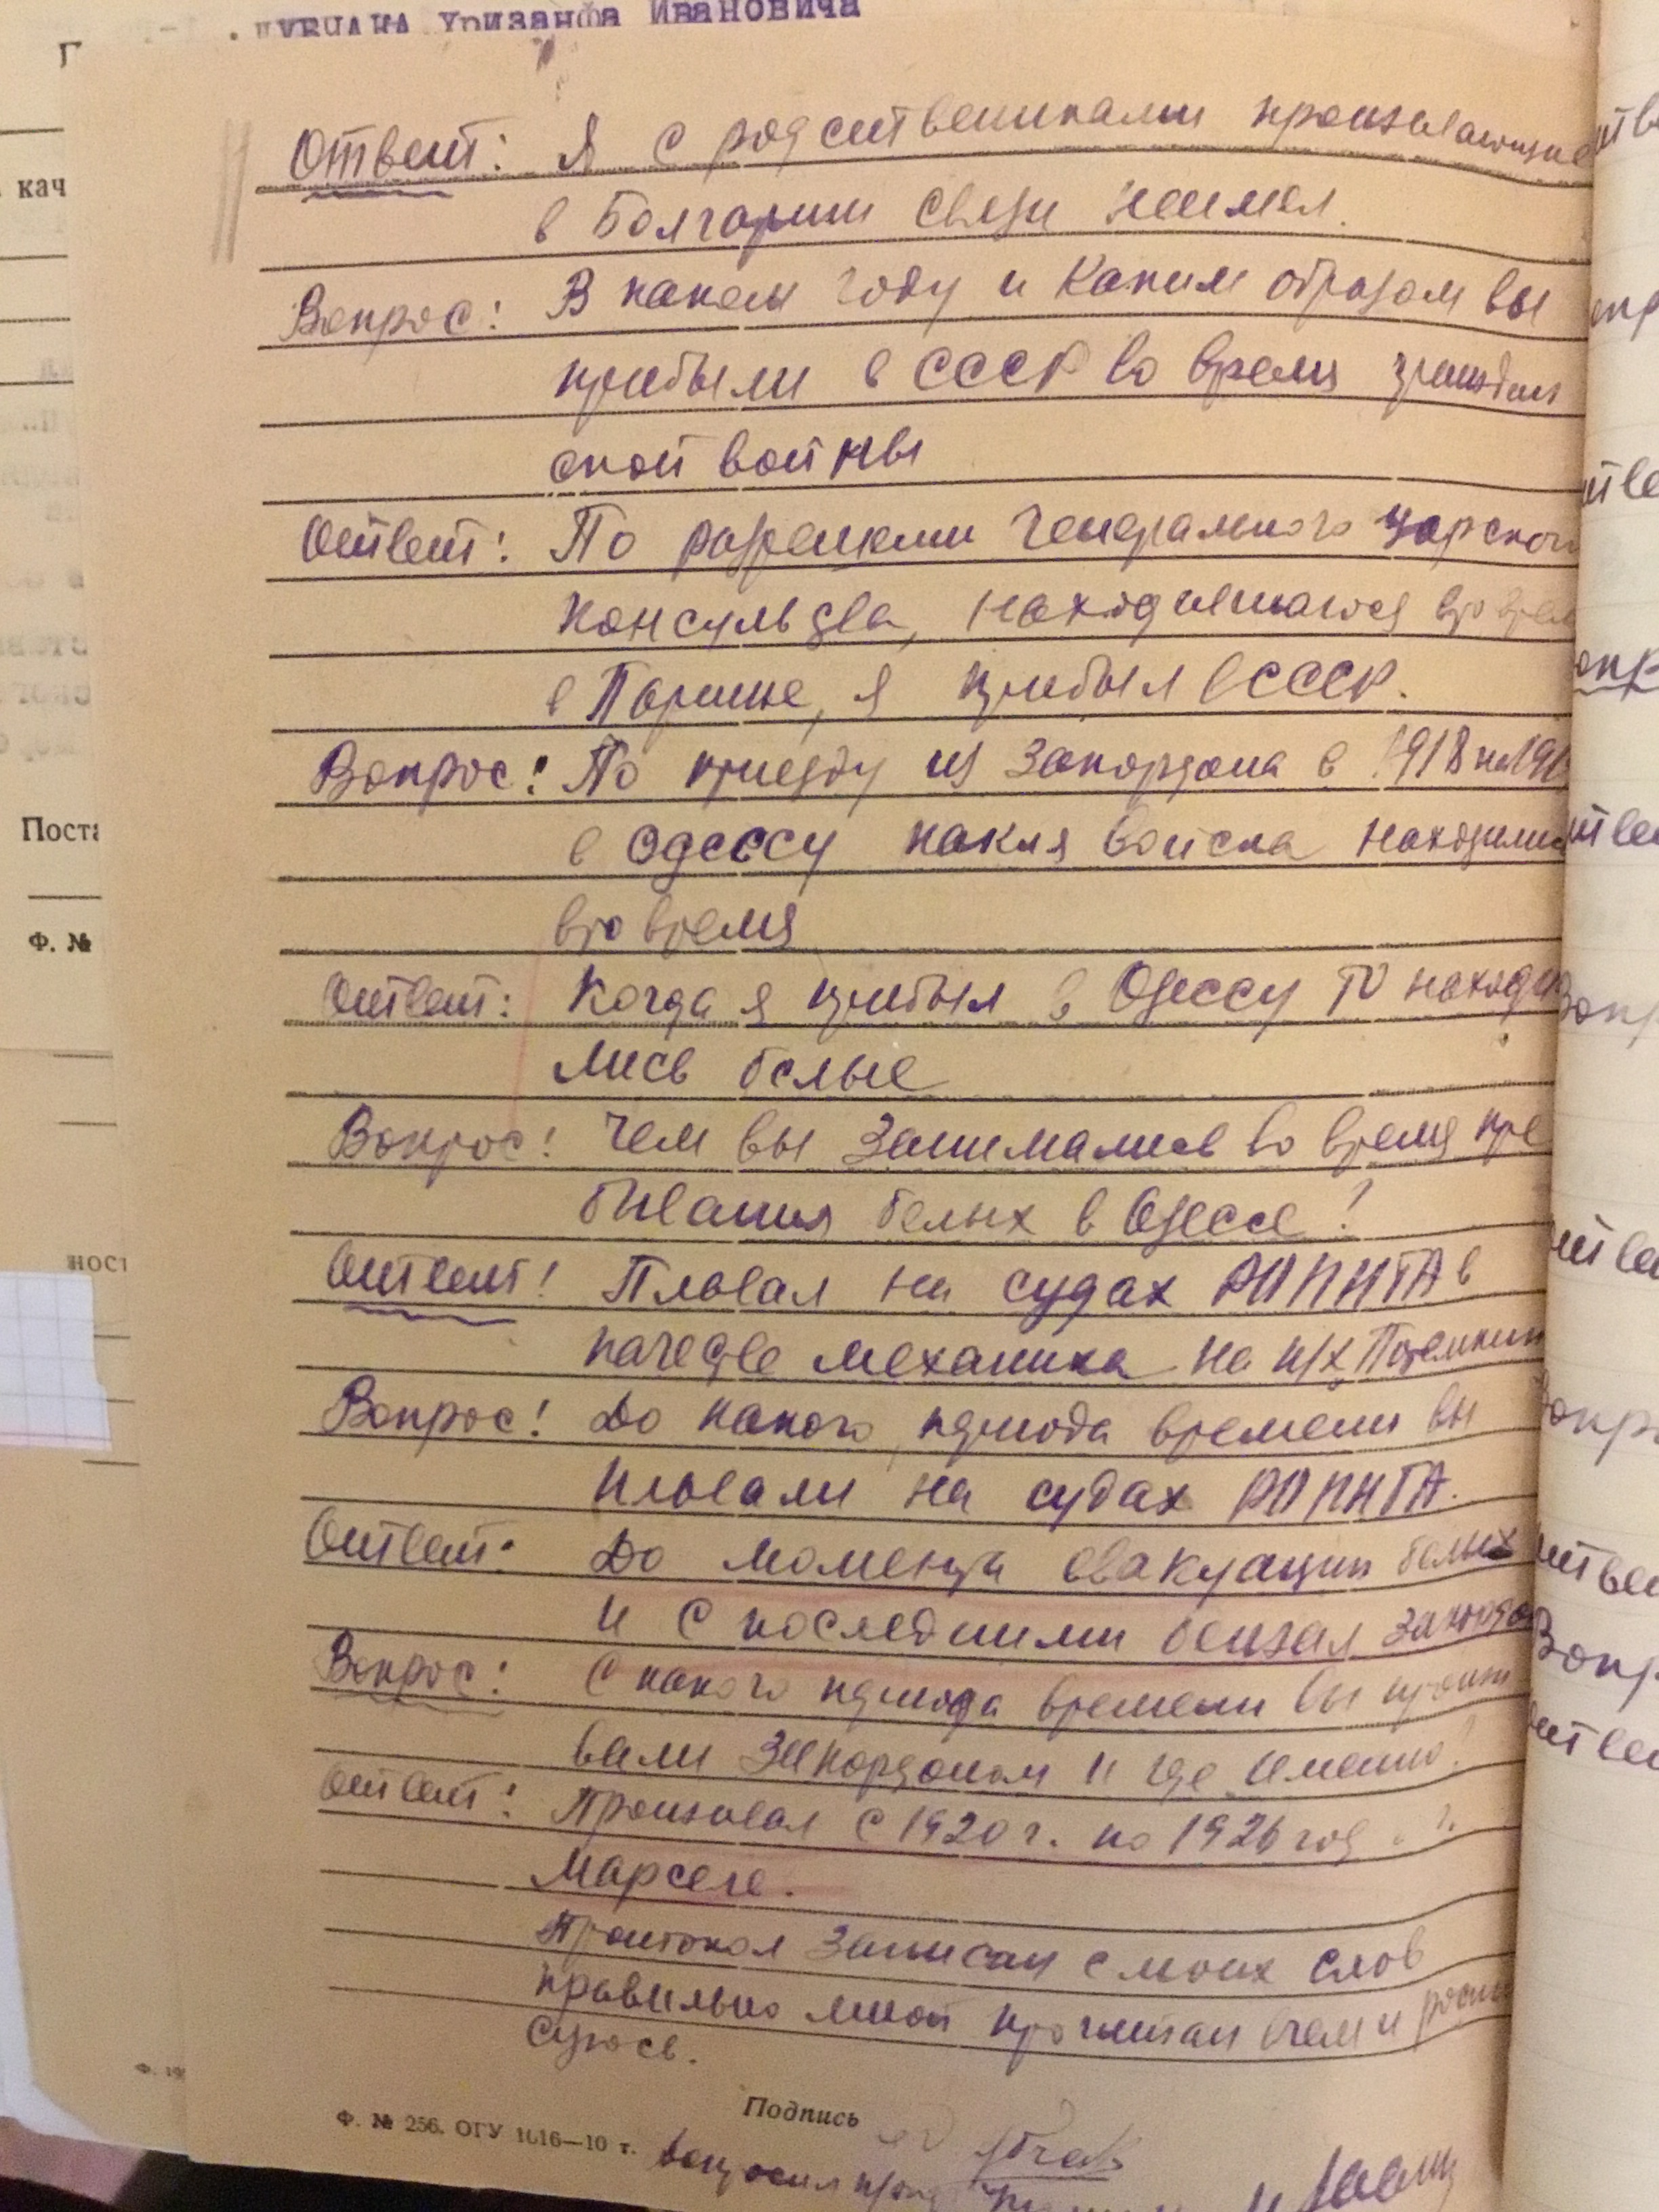 ДУБЧАКА Хризанфа Ивановича
кач
Поста
Ф. №
ност
Ответ: Я с родственниками проживающие
в Болгарии связи неимел.
Вопрос: В каком году и каким образом вы
прибыли в СССР во время граждан
ской войны
Ответ: По разрешении Генерального царского
консульства, находившагося в то врем
в Париже, я прибыл в СССР.
Вопрос: По приезду из закордона в 1918 на 191
в Одессу какия войска находились
в то время
Ответ: Когда я прибыл в Одессу то находи
лись белые
Вопрос: Чем вы занимались во время пре
бывания белых в Одессе?
Ответ: Плавал на судах РОПИТА в
качестве механика на п/х Потемкин
Вопрос: До какого периода времени вы
плавали на судах РОПИТА.
Ответ: До момента евакуации белых
и с последними бежал закордо
Вопрос: С какого периода времени вы прожи
вали закордоном и где именно?
Ответ: Проживал с 1920 г. по 1926 год
Марселе.
Протокол записан с моих слов
правильно мной прочитан в чем и распи
суюсь.
Подпись
Ф. № 256. ОГУ 1616—10 т.
Допросил